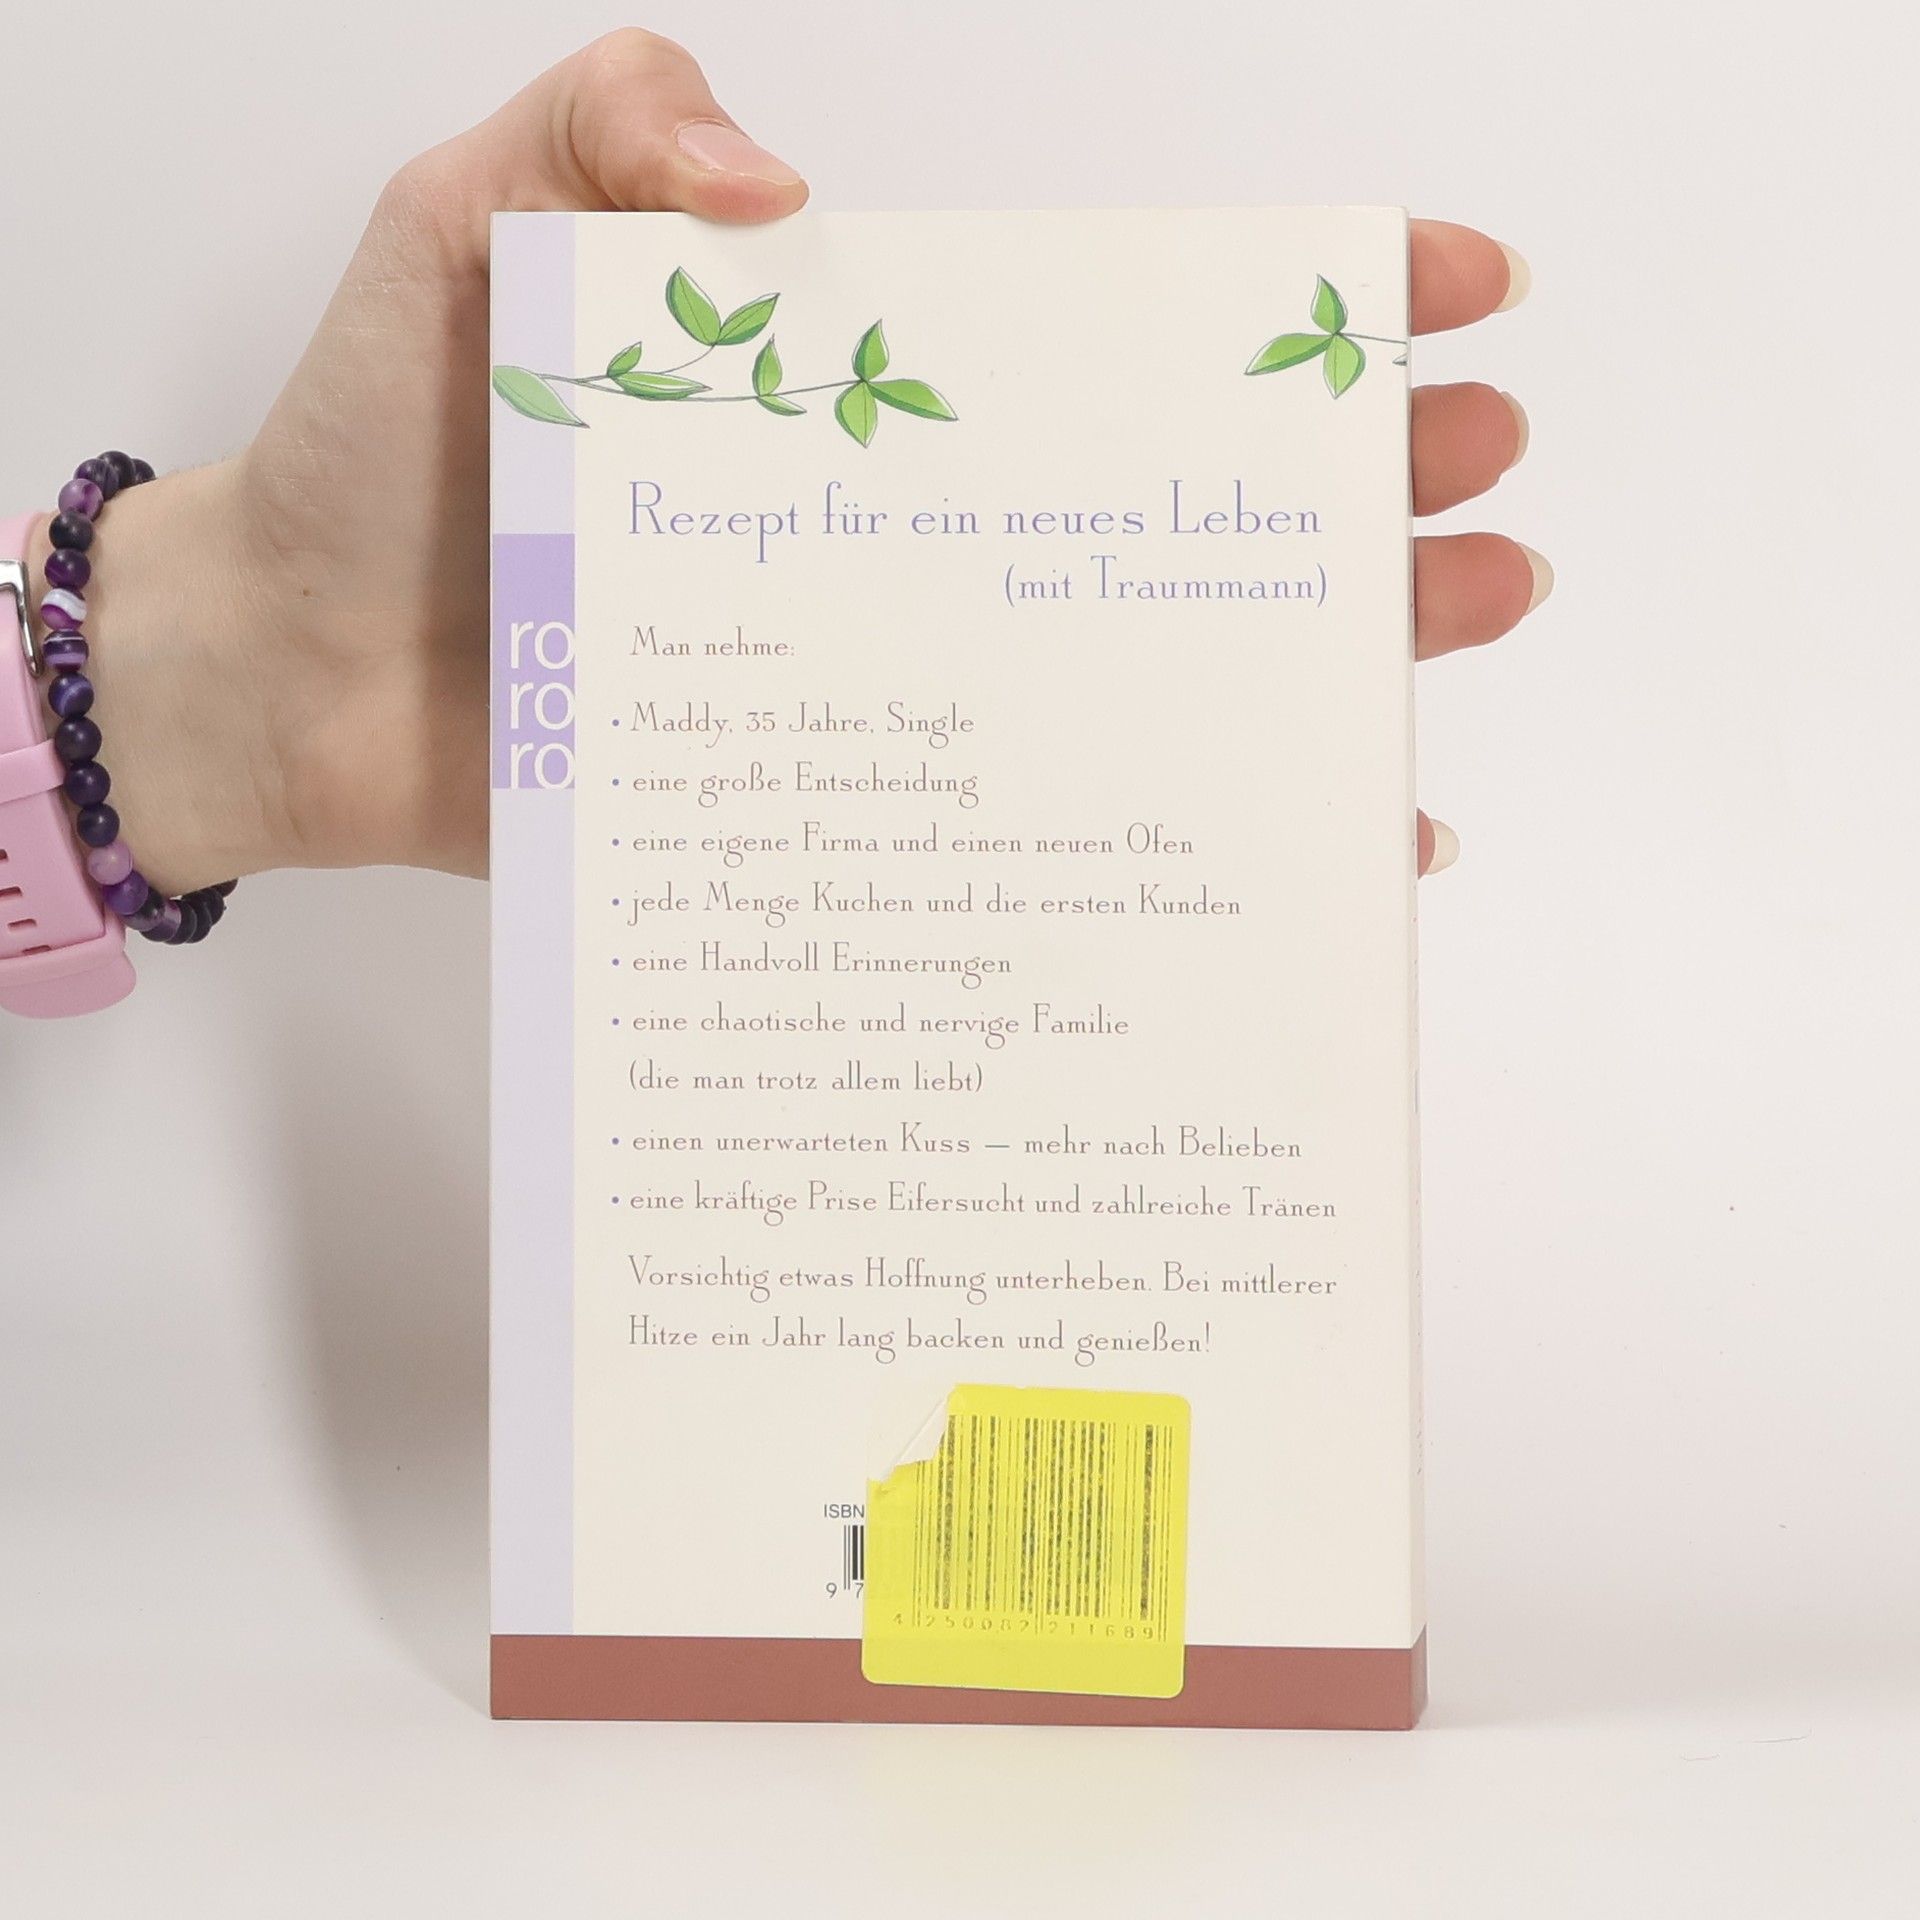 Rezept für ein neues Leben
(mit Traummann)
Man nehme:
• Maddy, 35 Jahre, Single
• eine große Entscheidung
• eine eigene Firma und einen neuen Ofen
• jede Menge Kuchen und die ersten Kunden
• eine Handvoll Erinnerungen
• eine chaotische und nervige Familie
(die man trotz allem liebt)
• einen unerwarteten Kuss – mehr nach Belieben
• eine kräftige Prise Eifersucht und zahlreiche Tränen
Vorsichtig etwas Hoffnung unterheben. Bei mittlerer
Hitze ein Jahr lang backen und genießen!
ro
ro
ro
ISBN
9 7
4 250082 211689